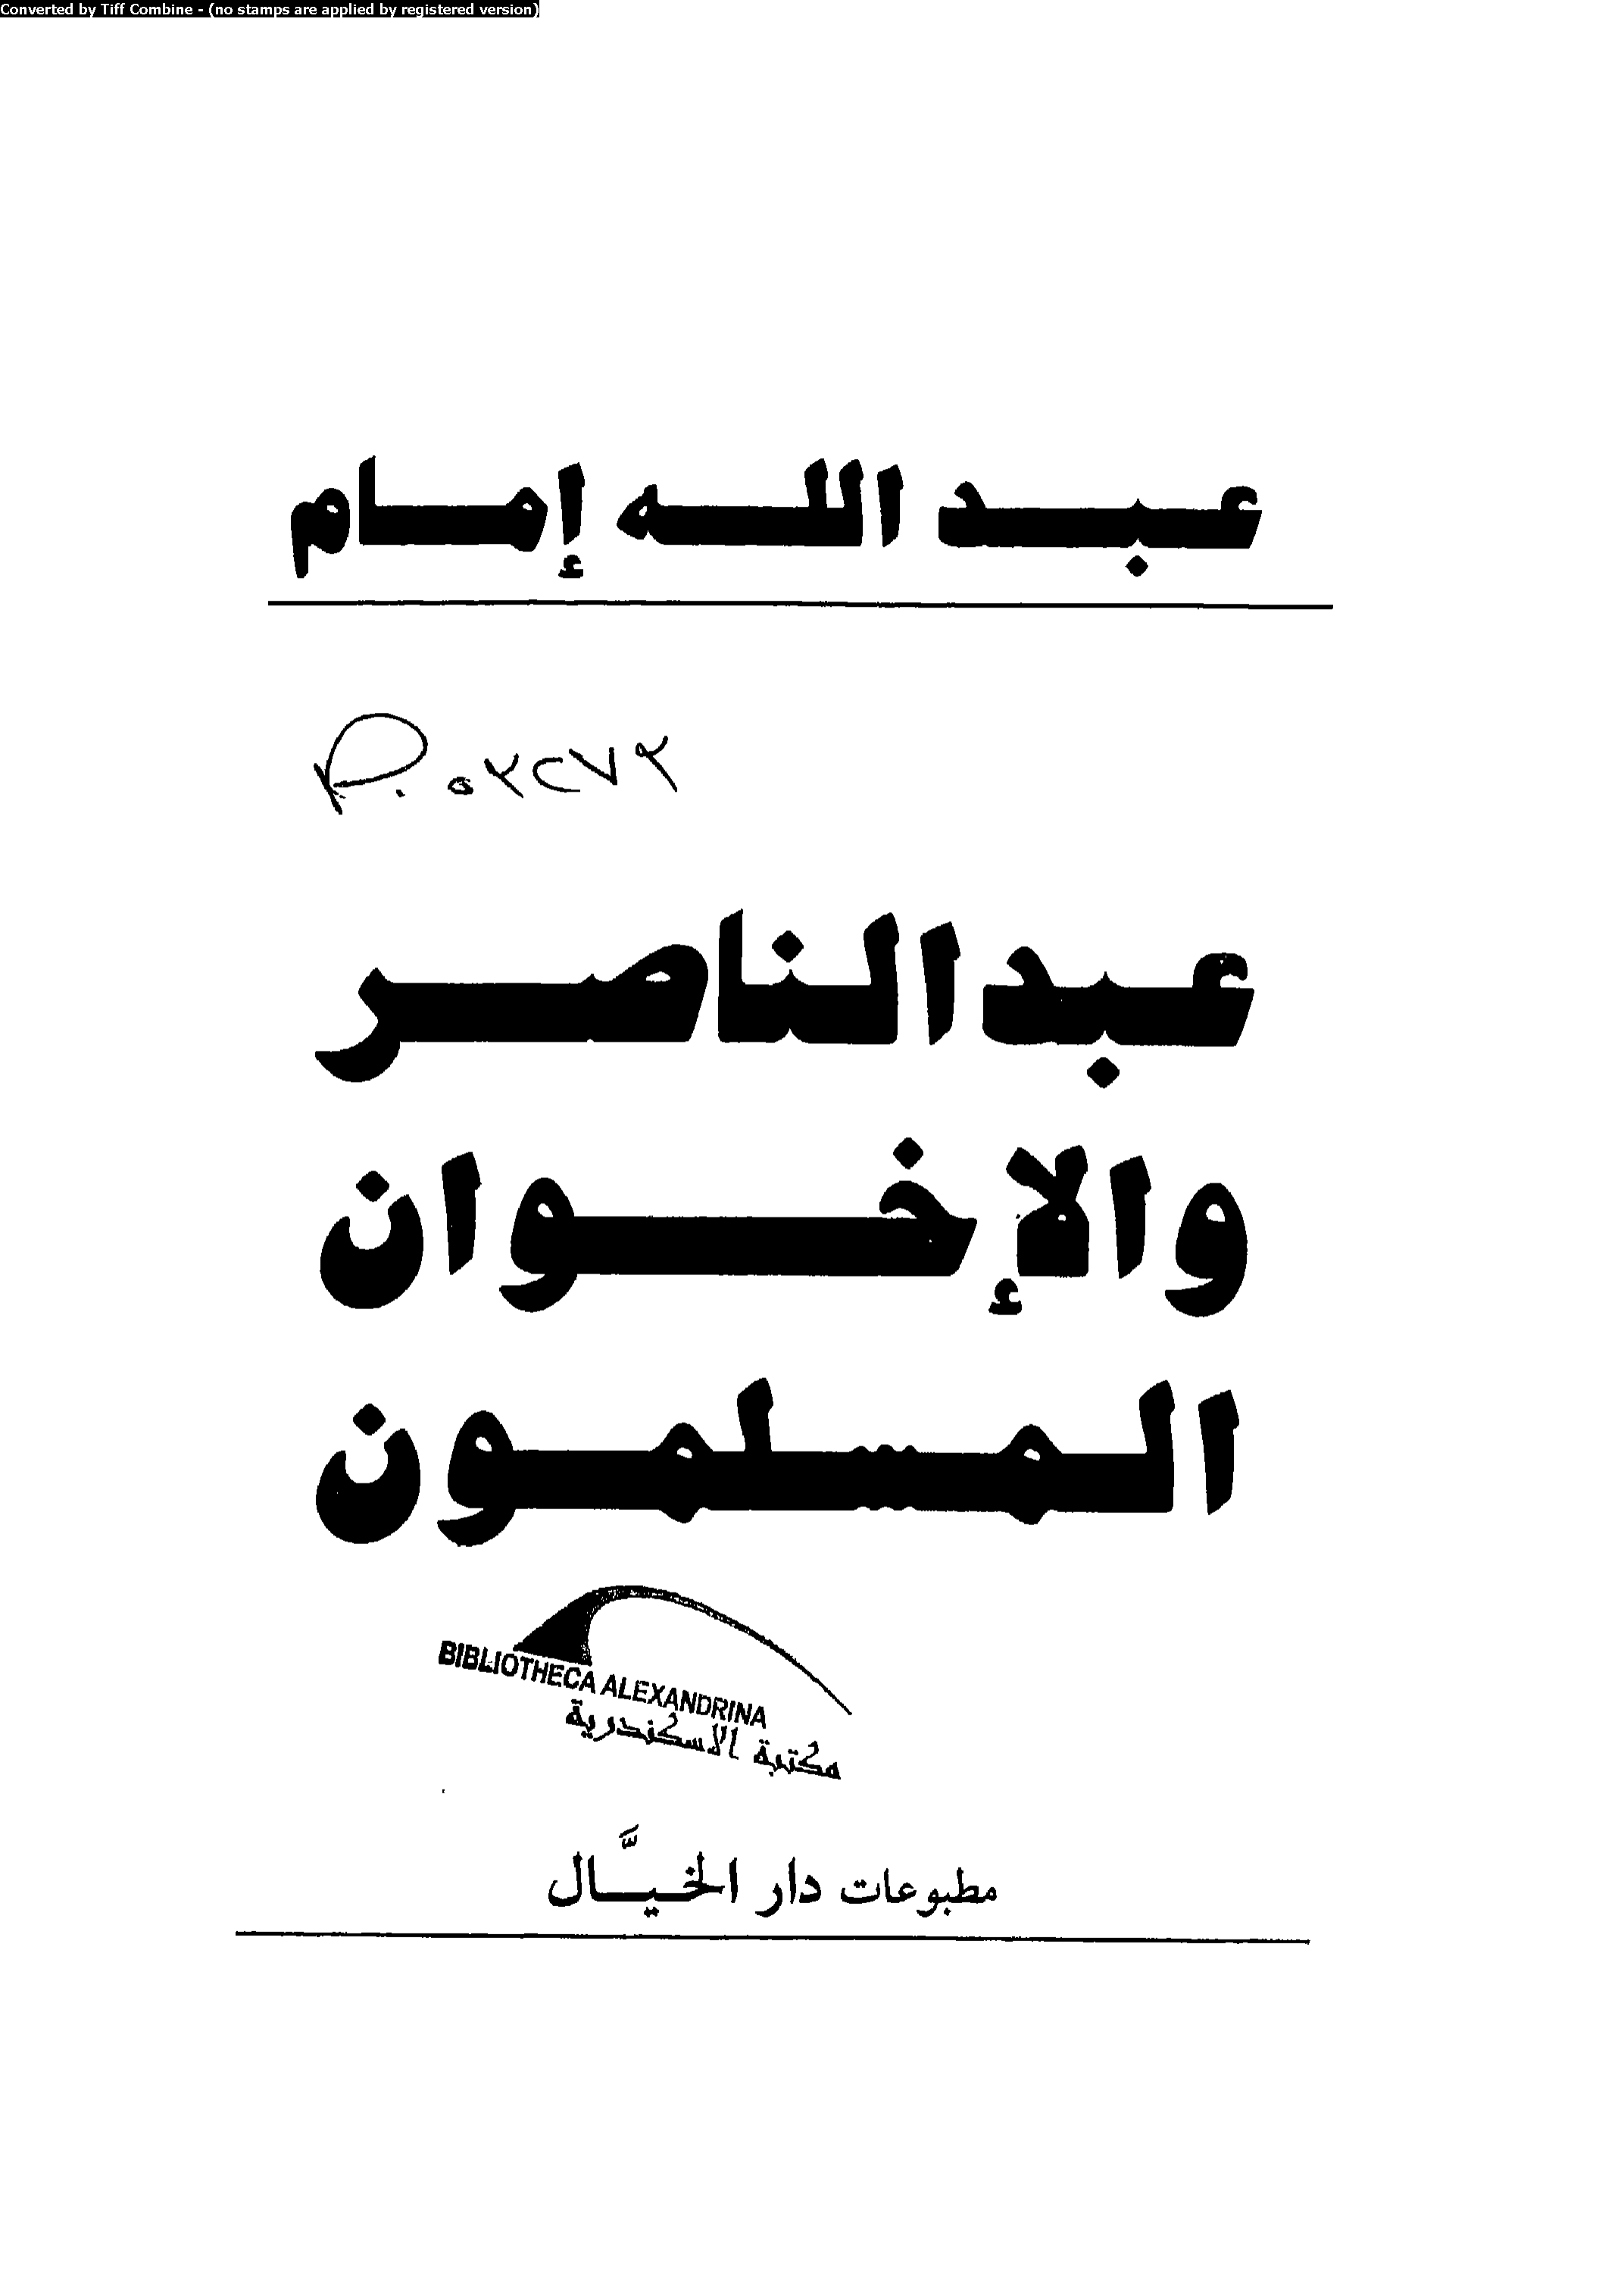 Converted by Tiff Combine - (no stamps are applied by registered version)
عبد الله إمام
عبد الناصر
والإخوان
المسلمون
BIBLIOTHECA ALEXANDRINA
مكتبة الاسكندرية
مطبوعات دار الخيَّال